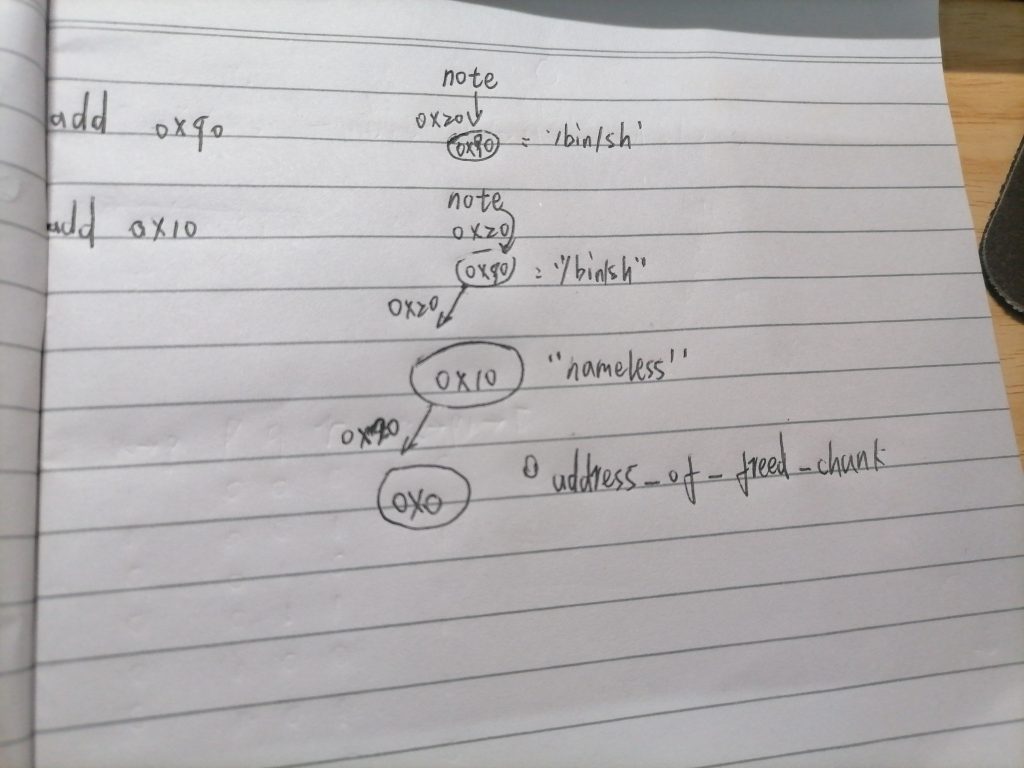 note
add 0x90 0x20
0x90 = '/bin/sh'
note
add 0x10 0x20
0x90 = "/bin/sh"
0x20
0x10 "nameless"
0x90
0x0 0 address_of_freed_chunk